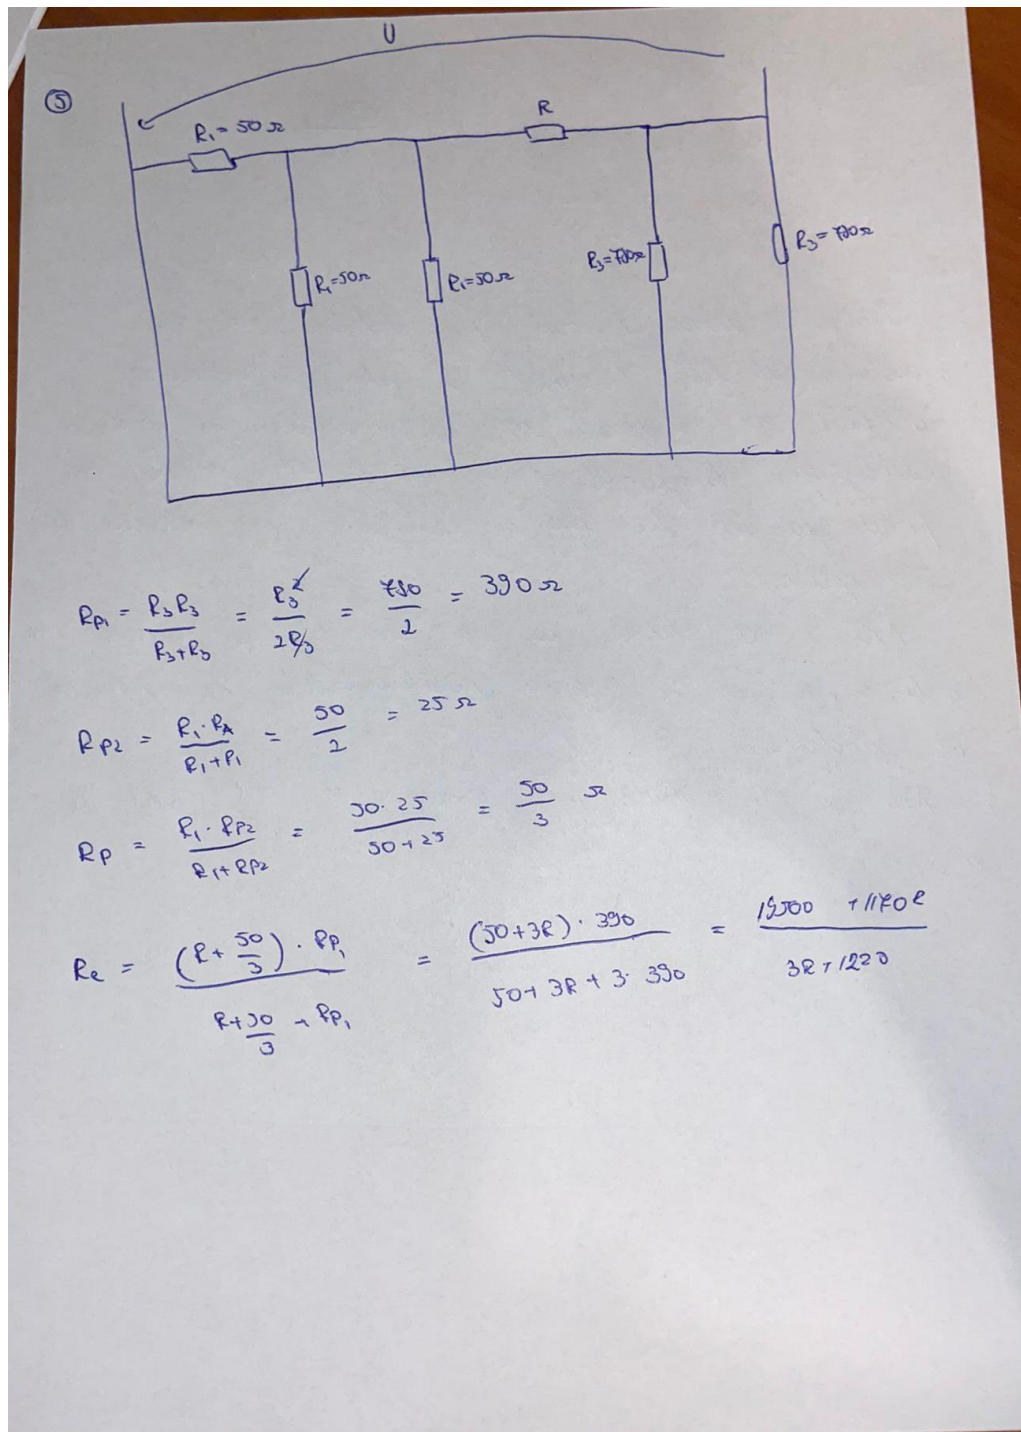 U
⑤
R₁ = 50 Ω
R
R₁=50Ω
R₁=50Ω
R₃=780Ω
R₃=780Ω
Rp₁ = R₃R₃ / R₃+R₃ = R₃² / 2R₃ = 780 / 2 = 390 Ω
Rp2 = R₁·R₁ / R₁+R₁ = 50 / 2 = 25 Ω
Rp = R₁·Rp2 / R₁+Rp2 = 50·25 / 50+25 = 50 / 3 Ω
Re = (R+50/3)·Rp₁ / R+50/3+Rp₁ = (50+3R)·390 / 50+3R+3·390 = 19500 +1170R / 3R+1220